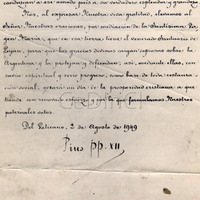 conduzcan a ser verdadero esplendor y grandeza
Nos, al expresar Nuestra viva gratitud, elevamos al
Señor Nuestras oraciones, por mediación de la Santísima Vir-
gen María, que en esa tierra tiene el venerado Santuario de
Luján, para que las gracias divinas caigan copiosas sobre la
Argentina y la protejan y defiendan; así, mediante ellas, con
nuevo espíritu y vero progreso, como base de toda restaura-
ción social, gozará un día de la prosperidad cristiana a que
tiende con renovado esfuerzo y por la que formulamos Nuestros
paternales votos.
Del Vaticano, 2 de Agosto de 1949
Pius PP. XII